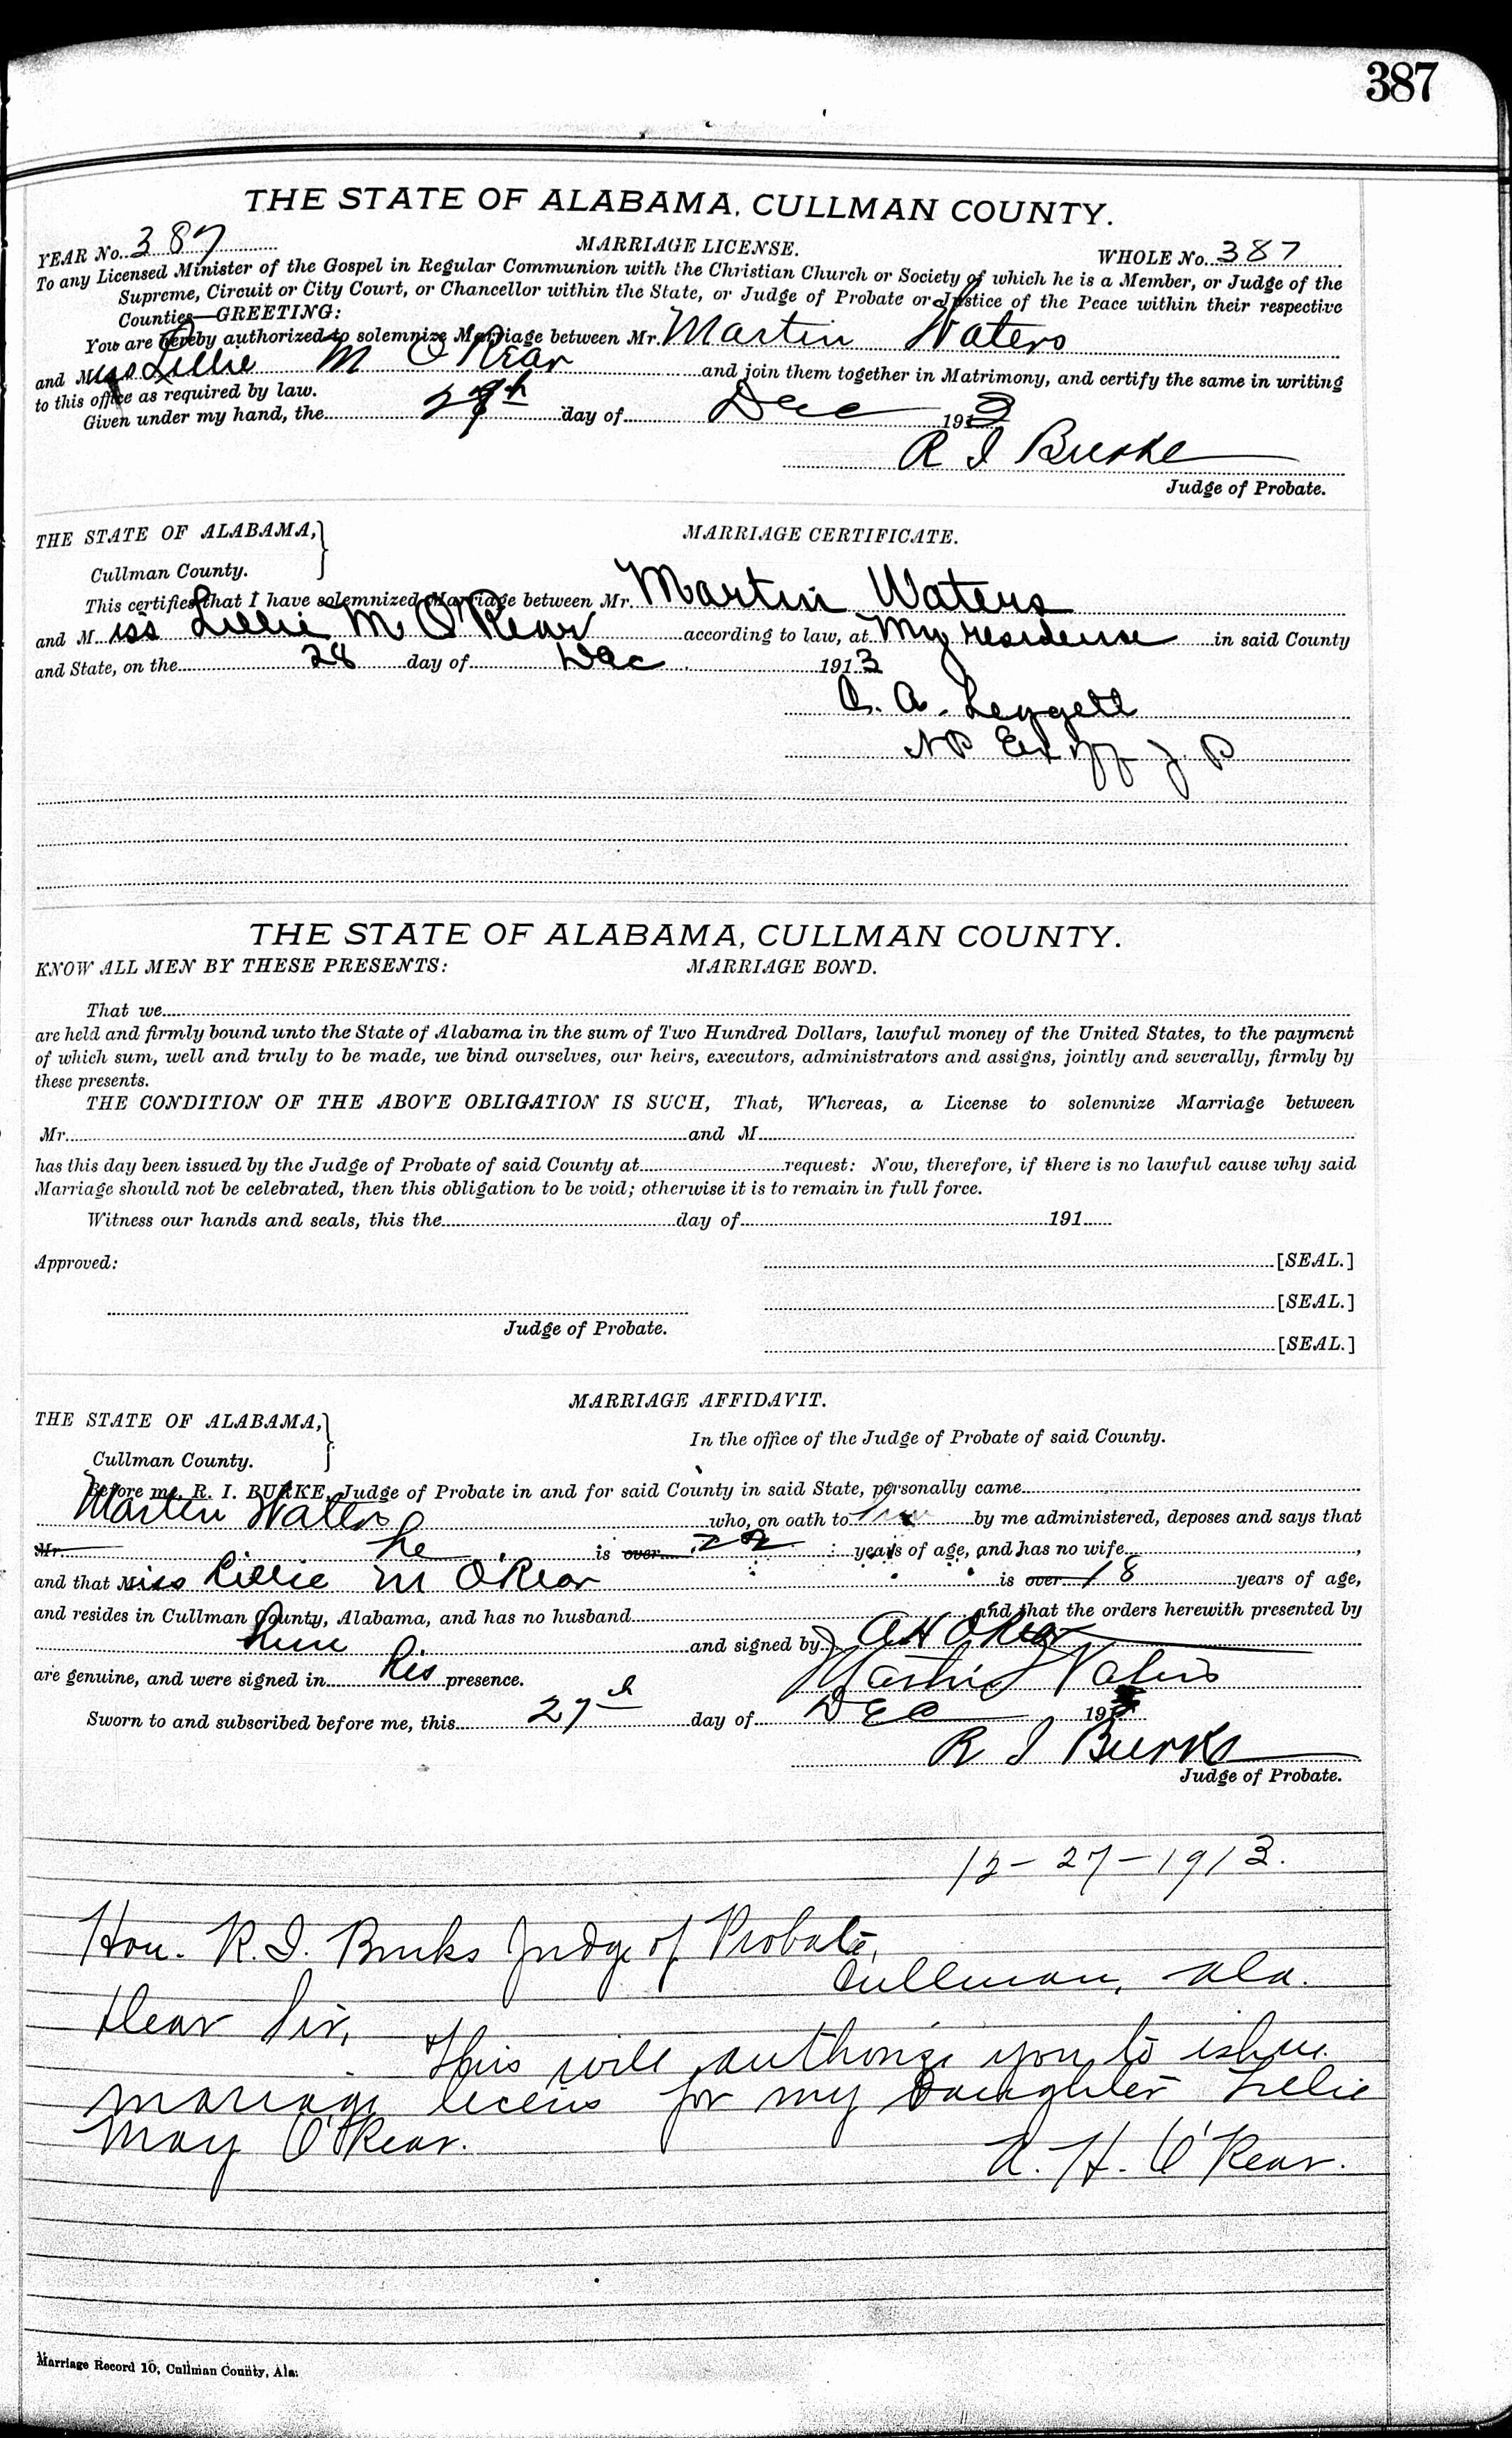 387
THE STATE OF ALABAMA, CULLMAN COUNTY.
YEAR No. 387 MARRIAGE LICENSE. WHOLE No. 387
To any Licensed Minister of the Gospel in Regular Communion with the Christian Church or Society of which he is a Member, or Judge of the
Supreme, Circuit or City Court, or Chancellor within the State, or Judge of Probate or Justice of the Peace within their respective
Counties—GREETING:
You are hereby authorized to solemnize Marriage between Mr. Martin Waters
and Miss Lillie M O'Rear and join them together in Matrimony, and certify the same in writing
to this office as required by law.
Given under my hand, the 27th day of Dec 1913
R I Burke
Judge of Probate.
THE STATE OF ALABAMA, MARRIAGE CERTIFICATE.
Cullman County.
This certifies that I have solemnized Marriage between Mr. Martin Waters
and Miss Lillie M O'Rear according to law, at My residense in said County
and State, on the 28 day of Dec 1913
A. Leggett
NP Ex off J P
THE STATE OF ALABAMA, CULLMAN COUNTY.
KNOW ALL MEN BY THESE PRESENTS: MARRIAGE BOND.
That we
are held and firmly bound unto the State of Alabama in the sum of Two Hundred Dollars, lawful money of the United States, to the payment
of which sum, well and truly to be made, we bind ourselves, our heirs, executors, administrators and assigns, jointly and severally, firmly by
these presents.
THE CONDITION OF THE ABOVE OBLIGATION IS SUCH, That, Whereas, a License to solemnize Marriage between
Mr. and M
has this day been issued by the Judge of Probate of said County at request: Now, therefore, if there is no lawful cause why said
Marriage should not be celebrated, then this obligation to be void; otherwise it is to remain in full force.
Witness our hands and seals, this the day of 191
Approved: [SEAL.]
[SEAL.]
Judge of Probate.
[SEAL.]
MARRIAGE AFFIDAVIT.
THE STATE OF ALABAMA,
In the office of the Judge of Probate of said County.
Cullman County.
Before me, R. I. BURKE, Judge of Probate in and for said County in said State, personally came
Martin Waters who, on oath to him by me administered, deposes and says that
Mr. he is over 22 years of age, and has no wife,
and that Miss Lillie M O'Rear is over 18 years of age,
and resides in Cullman County, Alabama, and has no husband and that the orders herewith presented by
him and signed by A H O'Rear
are genuine, and were signed in his presence. Martin Waters
Sworn to and subscribed before me, this 27th day of Dec 191
R I Burke
Judge of Probate.
12-27-1913.
Hon. R. I. Burks Judge of Probate,
Cullman, Ala.
Dear Sir,
This will authorize you to ishue
marriage licens for my Daughter Lillie
May O'Rear.
A. H. O'Rear.
Marriage Record 10, Cullman County, Ala.